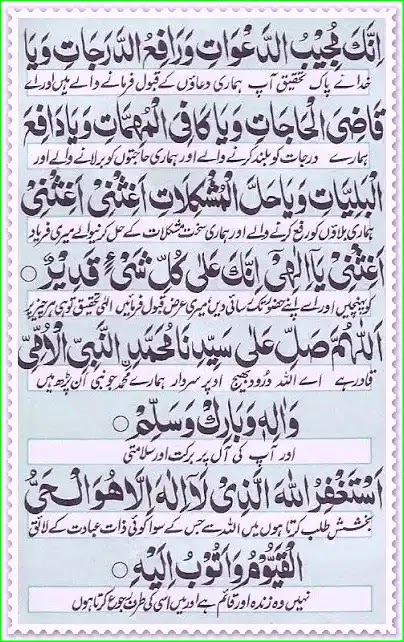 اِنَّكَ مُجِيْبُ الدَّعْوَاتِ وَرَافِعُ الدَّرَجَاتِ وَيَا
خدائے پاک تحقیق آپ ہماری دعاؤں کے قبول فرمانے والے ہیں اور اے
قَاضِىَ الْحَاجَاتِ وَيَا كَافِىَ الْمُهِمَّاتِ وَيَا دَافِعَ
ہمارے درجات کو بلند کرنے والے اور ہماری حاجتوں کو برلانے والے اور
الْبَلِيَّاتِ وَيَا حَلَّ الْمُشْكِلَاتِ اَغِثْنِىْ اَغِثْنِىْ
ہماری بلاؤں کو رفع کرنے والے اور ہماری سخت مشکلات کے حل کرنیوالے میری فریاد
اَغِثْنِىْ يَا اِلٰهِىْ اِنَّكَ عَلٰى كُلِّ شَىْءٍ قَدِيْرٌ ○
کو پہنچیں اور اے اپنے حضور تک رسائی دیں میری عرض قبول فرمائیں الٰہی تحقیق تو ہی ہر چیز پر
اَللّٰهُمَّ صَلِّ عَلٰى سَيِّدِنَا مُحَمَّدِ النَّبِىِّ الْاُمِّىِّ
قادر ہے اے اللہ درود بھیج اوپر سردار ہمارے محمدؐ جو نبی اَن پڑھ ہیں
وَاٰلِهٖ وَبَارِكْ وَسَلِّمْ ○
اور آپ کی آل پر برکت اور سلامتی
اَسْتَغْفِرُ اللهَ الَّذِىْ لَا اِلٰهَ اِلَّا هُوَ الْحَىُّ
بخشش طلب کرتا ہوں میں اللہ سے جس کے سوا کوئی ذات عبادت کے لائق
الْقَيُّوْمُ وَاَتُوْبُ اِلَيْهِ ○
نہیں وہ زندہ اور قائم ہے اور میں اسی کی طرف رجوع کرتا ہوں